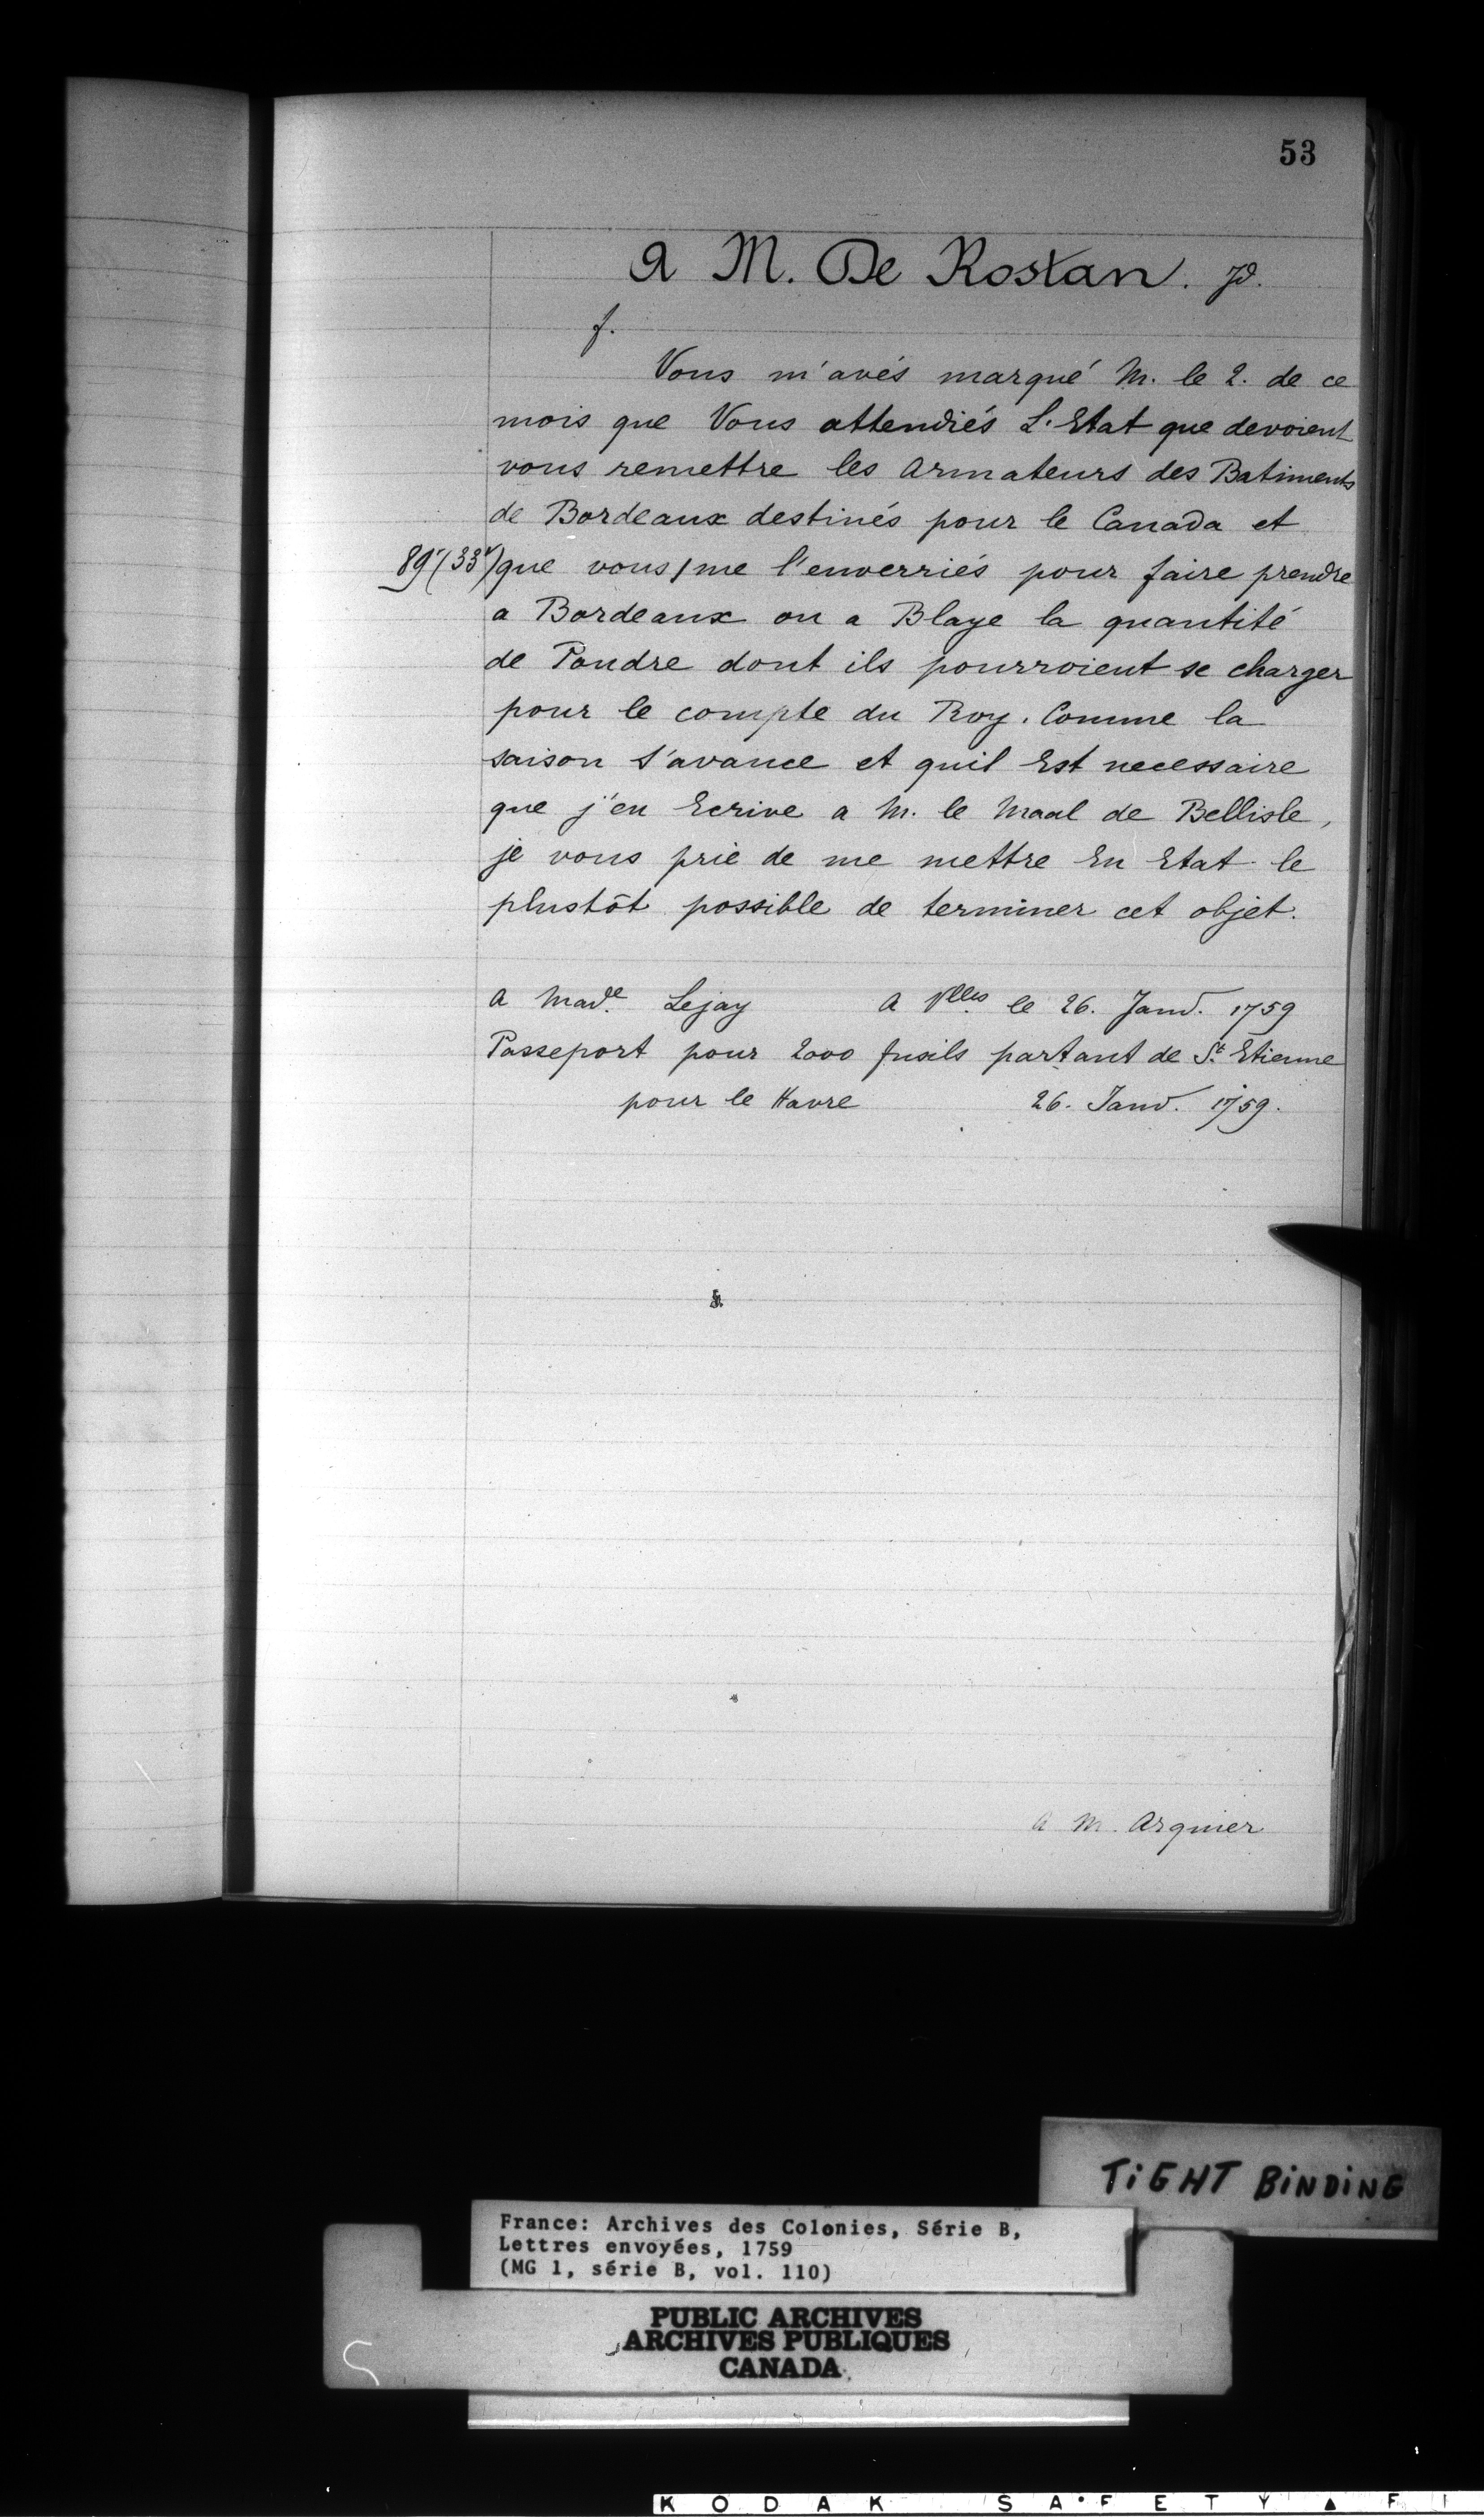 53
A M. De Rostan. Jd.
f.
Vous m'avés marqué M. le 2. de ce
mois que Vous attendiés L'Etat que devoient
vous remettre les Armateurs des Batiments
de Bordeaux destinés pour le Canada et
89r (33r) que vous/me l'enverriés pour faire prendre
a Bordeaux ou a Blaye la quantité
de Poudre dont ils pourroient se charger
pour le compte du Roy. Comme la
saison s'avance et quil Est necessaire
que j'en Ecrive a M. le Maal de Bellisle,
je vous prie de me mettre En Etat le
plustôt possible de terminer cet objet.
a Made. Lejay A Vlles le 26. Janv. 1759
Passeport pour 2000 fusils partant de St. Etienne
pour le Havre 26. Janv. 1759.
a M. Arquier
TiGHT BiNDiNG
France: Archives des Colonies, Série B,
Lettres envoyées, 1759
(MG 1, série B, vol. 110)
PUBLIC ARCHIVES
ARCHIVES PUBLIQUES
CANADA
KODAK SAFETY ▲ FI